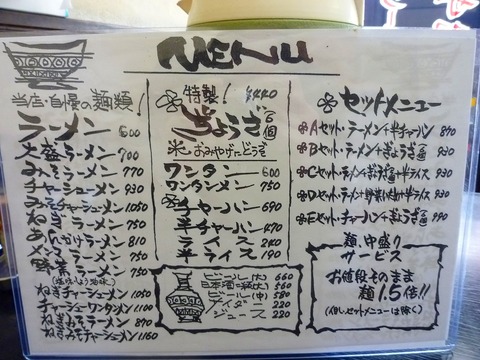 MENU
当店・自慢の麺類!
ラーメン 600
大盛ラーメン 700
みそラーメン 770
チャーシューメン 930
みそチャーシューメン 1050
ねぎラーメン 750
あんかけラーメン 810
メンマラーメン 750
野菜ラーメン 750
ねぎチャーシューメン 1050
チャーシューワンタンメン 1100
ねぎみそラーメン 870
ねぎみそチャーシューメン 1160
特製! ¥440
ぎょうざ 6個
※おみやげにどうぞ
ワンタン 600
ワンタンメン 750
チャーハン 690
半チャーハン 470
ライス 240
半ライス 190
ビール(大) 660
日本酒 560
ビール(中) 580
サイダー 220
ジュース 220
セットメニュー
Aセット・ラーメン+半チャーハン 890
Bセット・ラーメン+ぎょうざ 930
Cセット・ラーメン+ぎょうざ+半ライス 930
Eセット・チャーハン+ぎょうざ 990
麺、中盛り
サービス
お値段そのまま
麺1.5倍!!
(但し、セットメニューは除く)